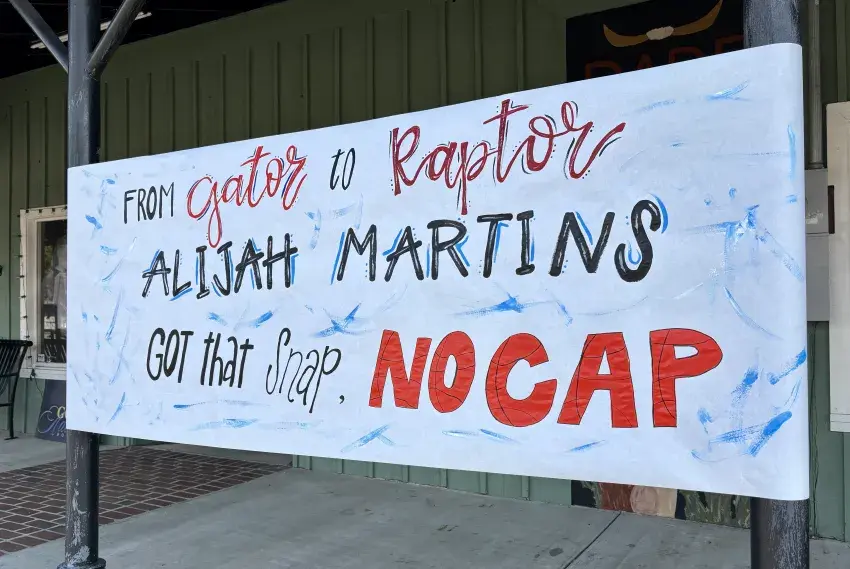 FROM gator to Raptor
ALIJAH MARTINS
GOT that snap, NO CAP